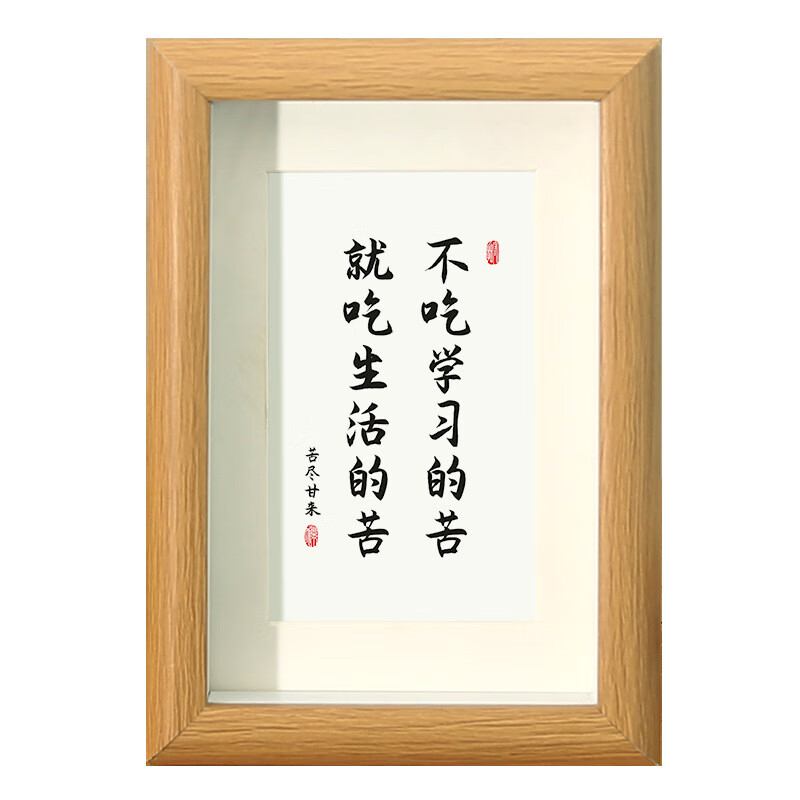 不吃学习的苦
就吃生活的苦
苦尽甘来